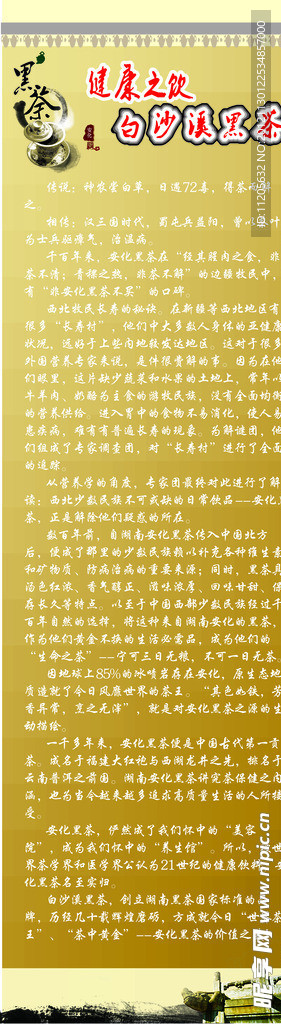 黑茶
健康之饮
白沙溪黑茶
传说：神农尝百草，日遇72毒，得茶而解
之。
相传：汉三国时代，蜀屯兵益阳，曾以茶叶
为士兵驱瘴气，治温病。
千百年来，安化黑茶在“经其腥肉之食，非
茶不消；青稞之热，非茶不解”的边疆牧民中，
有“非安化黑茶不买”的口碑。
西北牧民长寿的秘诀。在新疆等西北地区有
很多“长寿村”，他们中大多数人身体的亚健康
状况，远好于上些内地较发达地区。这对于很多
外国营养专家来说，是件很费解的事。因为在他
们眼里，这片缺少蔬菜和水果的土地上，常年以
牛羊肉、奶酪为主食的游牧民族，没有全面均衡
的营养供给。进入胃中的食物不易消化，使人易
患疾病，难有有普遍长寿的现象。为解健团，他
们组成了专家调查团，对“长寿村”进行了全面
的追踪。
从营养学的角度，专家团最终对此进行了解
读：西北少数民族不可或缺的日常饮品--安化黑
茶，正是解除他们疑惑的所在。
数百年前，自湖南安化黑茶传入中国北方
后，便成了那里的少数民族赖以补充各种维生素
和矿物质、防病治病的重要来源；同时，黑茶具
汤色红浓、香气醇正、滋味浓厚、回味甘甜、保
存长久等特点。以至于中国西部少数民族经过千
百年自然的选择，将这种来自湖南安化的黑茶，
作为他们黄金不换的生活必需品，成为他们的
“生命之茶”--宁可三日无粮，不可一日无茶。
因地球上85%的冰碛岩存在安化，原生态地
质造就了今日风靡世界的茶王。“其色如铁，芳
香异常，烹之无滓”，就是对安化黑茶之源的生
动描绘。
一千多年来，安化黑茶便是中国古代第一贡
茶。成名于福建大红袍与西湖龙井之先，排名于
云南普洱之前国。湖南安化黑茶讲究茶保健之内
涵，也为当今越来越多追求高质量生活的人所接
受。
安化黑茶，俨然成了我们怀中的“美容
院”，成为我们怀中的“养生馆”。所以，世
界茶学界和医学界公认为21世纪的健康饮料--安
化黑茶名至实归。
白沙溪黑茶，创立湖南黑茶国家标准的品
牌，历经几十载辉煌磨砺，方成就今日“世界茶
王”、“茶中黄金”--安化黑茶的价值之
昵享网 www.nipic.cn